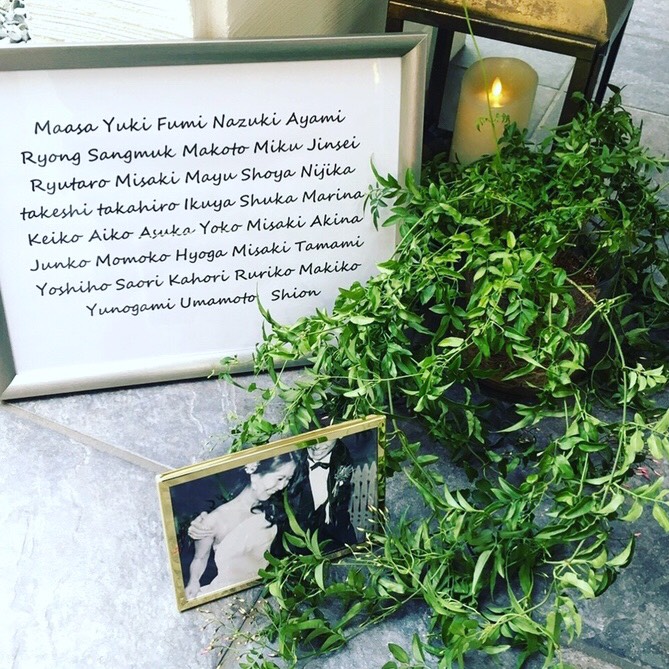 Maasa Yuki Fumi Nazuki Ayami
Ryong Sangmuk Makoto Miku Jinsei
Ryutaro Misaki Mayu Shoya Nijika
takeshi takahiro Ikuya Shuka Marina
Keiko Aiko Asuka Yoko Misaki Akina
Junko Momoko Hyoga Misaki Tamami
Yoshiho Saori Kahori Ruriko Makiko
Yunogami Umamoto Shion